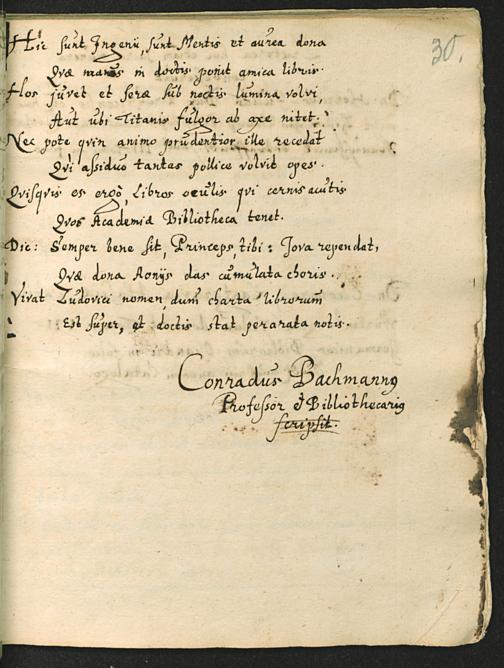 30.
Hîc sunt Ingenii, sunt Mentis et aurea dona
Quæ manus in doctis ponit amica libris.
Hos juvet et seræ sub noctis lumina volvi,
Aut ubi Titanis fulgor ab axe nitet.
Nec pote qvin animo prudentior ille recedat
Qvi assiduo tantas pollice volvit opes.
Qvisqvis es ergò, libros oculis qvi cernis acutis
Qvos Academiæ Bibliotheca tenet.
Dic: Semper bene sit, Princeps, tibi: Jova rependat,
Qvæ dona Aonijs das cumulata choris.
Vivat Ludovici nomen, dum charta librorum
Est super, et doctis stat perarata notis.
Conradus Bachmannꝰ
Professor & Bibliothecariꝰ
scripsit.